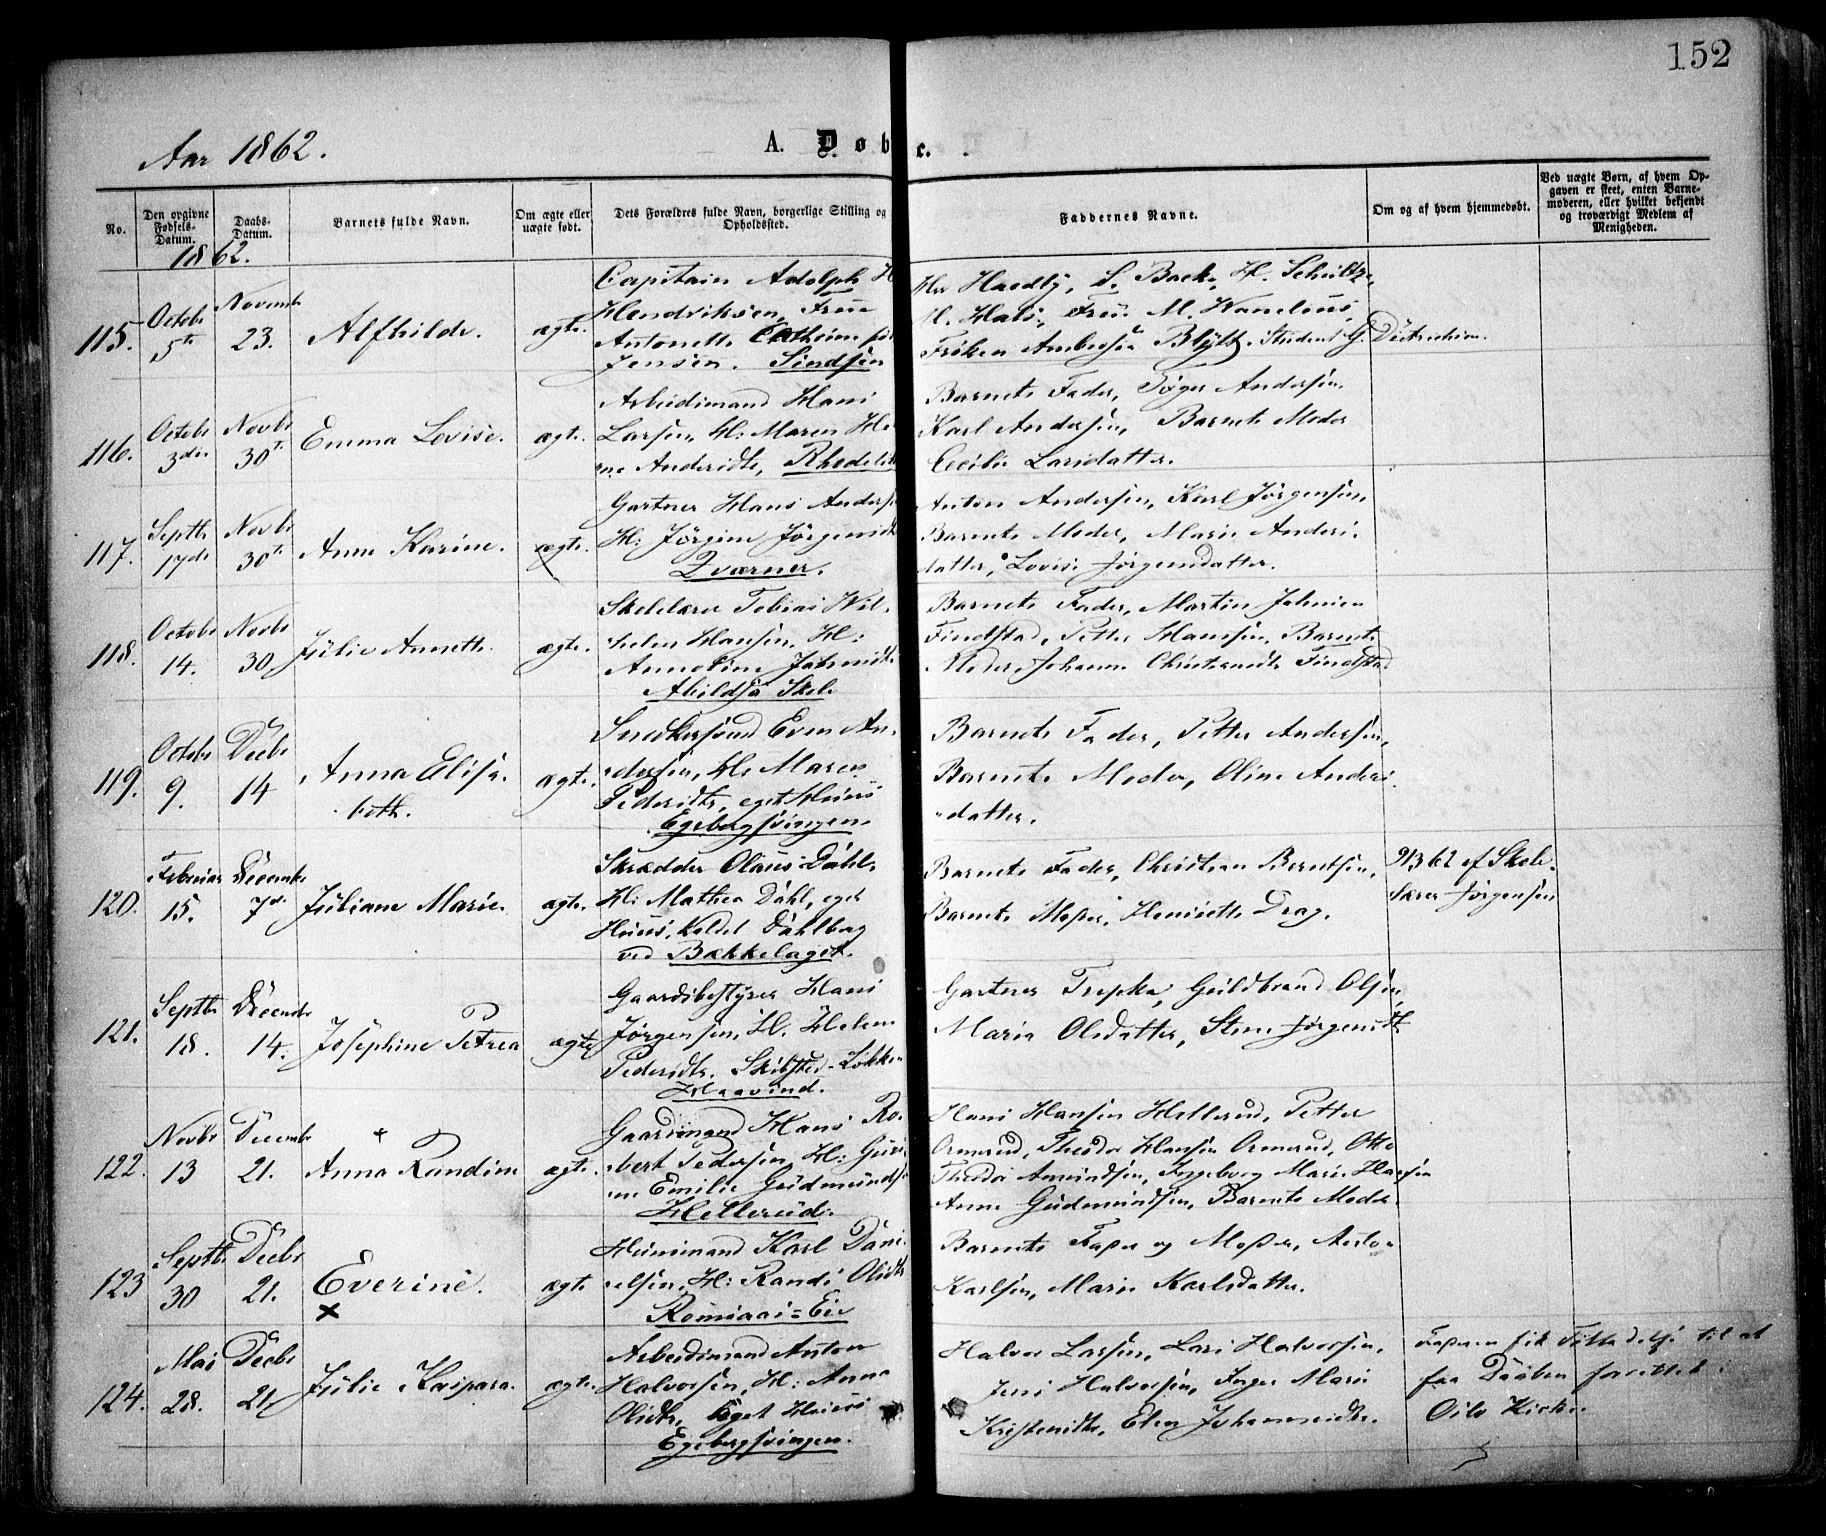 152
Aar 1862.
A. Døbte.
No.
Den opgivne Fødsels-Datum.
Daabs-Datum.
Barnets fulde Navn.
Om ægte eller uægte født.
Dets Forældres fulde Navn, borgerlige Stilling og Opholdssted.
Faddernes Navne.
Om og af hvem hjemmedøbt.
Ved uægte Børn, af hvem Opgaven er skeet, enten Barnemoderen, eller hvilket bekjendt og troværdigt Medlem af Menigheden.
1862.
115. Octobr 5te Novembr 23. Alfhilde. ægte.
Capitain Adolph H
Hendriksen, Frue
Antonette Cathrine
Jensen.
S. Back, H. Schultze,
Frøken Blytt. Student G.
116. Octobr 3die Novbr 30te Emma Lovise. ægte.
Arbeidsmand Hans
Larsen, H: Maren He
ne Andersdtr,
Barnets Fader, Andersen,
Karl Andersen, Barnets Moder
Cecilie Larsdatter.
117. Septbr 17de Novbr 30te Anne Karine. ægte.
Gartner Hans Anders
H: Jørgine Jørgensdt
Qværner.
Anton Andersen, Karl Jørgensen,
Barnets Moder, Marie Anders-
datter, Lovise Jørgensdatter.
118. Octobr 14. Novbr 30 Julie Annette. ægte.
Skolelærer Tobias Wil-
helm Hansen, H:
Abildsø Skole
Barnets Fader, Martin Johnsen
Findstad, Petter Hanssen, Barnets
Moder, Johanne Christiansdtr Findstad
119. Octobr 9. Decbr 14 Anna Elisa-
beth. ægte.
Snedkersvend Even An-
dersen, H: Maren
Pedersdtr, eget Huus
Egebergsvingen
Barnets Fader, Petter Andersen,
Barnets Moder, Oline Anders
datter.
120. Februar 15. Decembr 7de Juliane Marie. ægte.
Skrædder Olaus Dahl,
H: Mathea Dahl, eget
Huus, kaldet Dahlborg
ved Bækkelaget.
Barnets Fader, Christian Berntsen,
Barnets Moder, Henriette Drag.
9/3 62 af Skole-
lærer Jørgensen
121. Septbr 18. Decembr 14. Josephine Petrea ægte
Gaardsbestyrer Hans
Jørgensen, H: Helene
Pedersdtr.
Gartner Guldbrand Olsen,
Maria Olsdatter, Jørgensdtr
122. Novbr 13 Decembr 21. Anna Randine ægte.
Gaardmand Hans Ro-
bert Pedersen, H:
ne Emilie Gudmunds
Hellerud.
Hans Hansen Hellerud, Petter
Ormerud, Theodor Hansen Ormerud, Otto
Theodor Amundsen, Ingeborg Marie Hansen
Anne Gudmundsen, Barnets Moder.
123 Septbr 30 Decbr 21. Everine. ægte
Huusmand Karl Dani-
elsen, H: Randi Olsdtr
Barnets Fader og Moder, Anton
Karlsen, Marie Karlsdatter.
124. Mai 28. Decbr 21 Julie Kaspara. ægte.
Arbeidsmand Anton
Halvorsen, H: Anna
Olsdtr, Eget Huus
Egebergsvingen.
Halvor Larsen, Lars Halvorsen,
Jens Halvorsen, Inger Marie
Kristensdtr, Elen Johannesdtr.
Faderen fik Tilladelse til at
faa Daaben forrettet i
Oslo Kirke.